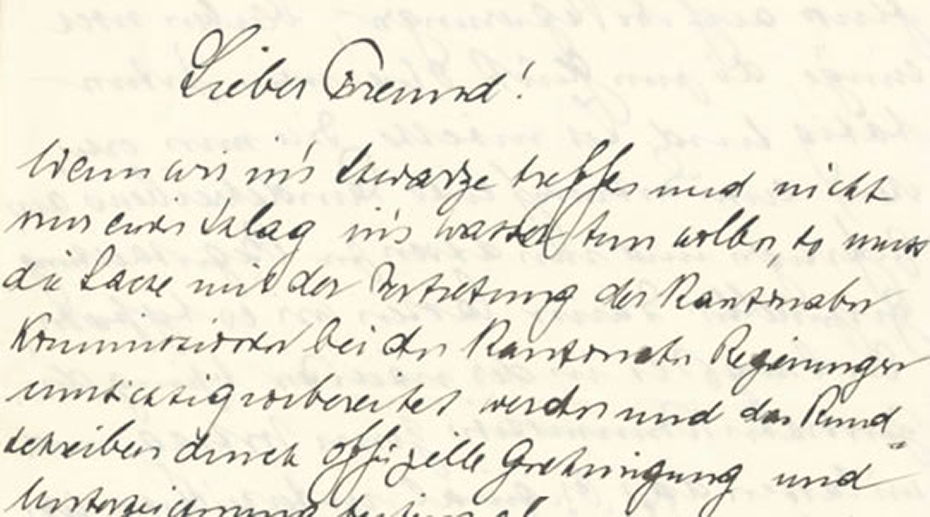 Lieber Freund!
Wenn wir in's Schwarze treffen und nicht
nur einen Schlag in's Wasser tun wollen, so muss
die Sache mit der Vertretung der Kantonalen
Kommissionen bei den Kantonalen Regierungen
umsichtig vorbereitet werden und das Rund-
schreiben durch offizielle Genehmigung und
Unterzeichnung